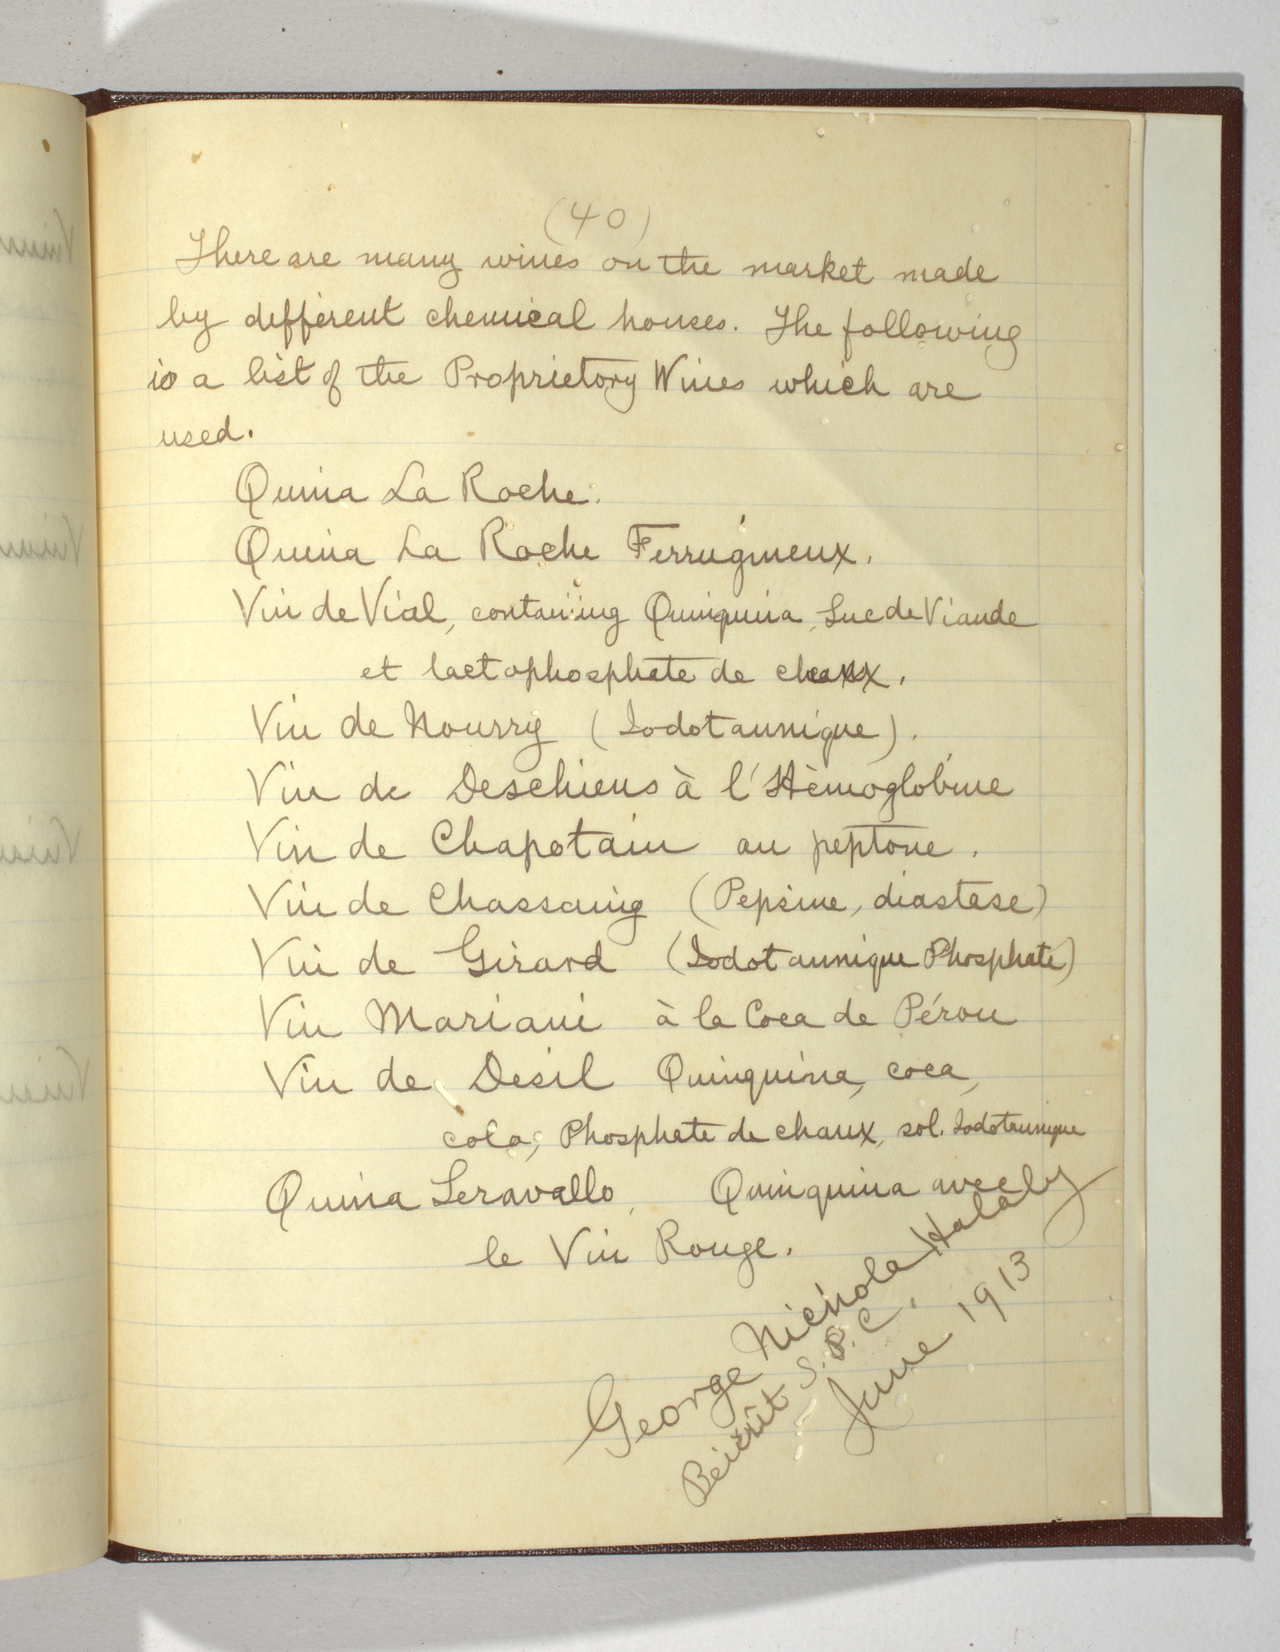 (40)
There are many wines on the market made
by different chemical houses. The following
is a list of the Proprietory Wines which are
used.
Quina La Roche.
Quina La Roche Ferrugineux.
Vin de Vial, containing Quinquina, Suc de Viande
et lactophosphate de chaux.
Vin de Nourry (Iodotannique).
Vin de Deschiens à l'Hèmoglobine
Vin de Chapotain au peptone.
Vin de Chassaing (Pepsine, diastase)
Vin de Girard (Iodotannique Phosphate)
Vin Mariani à la Coca de Pérou
Vin de Desil Quinquina, coca,
cola, Phosphate de chaux, sol. Iodotannique
Quina Seravallo, Quinquina avec
le Vin Rouge.
George Nichola Halaly
Beirût S.P.C.
June 1913